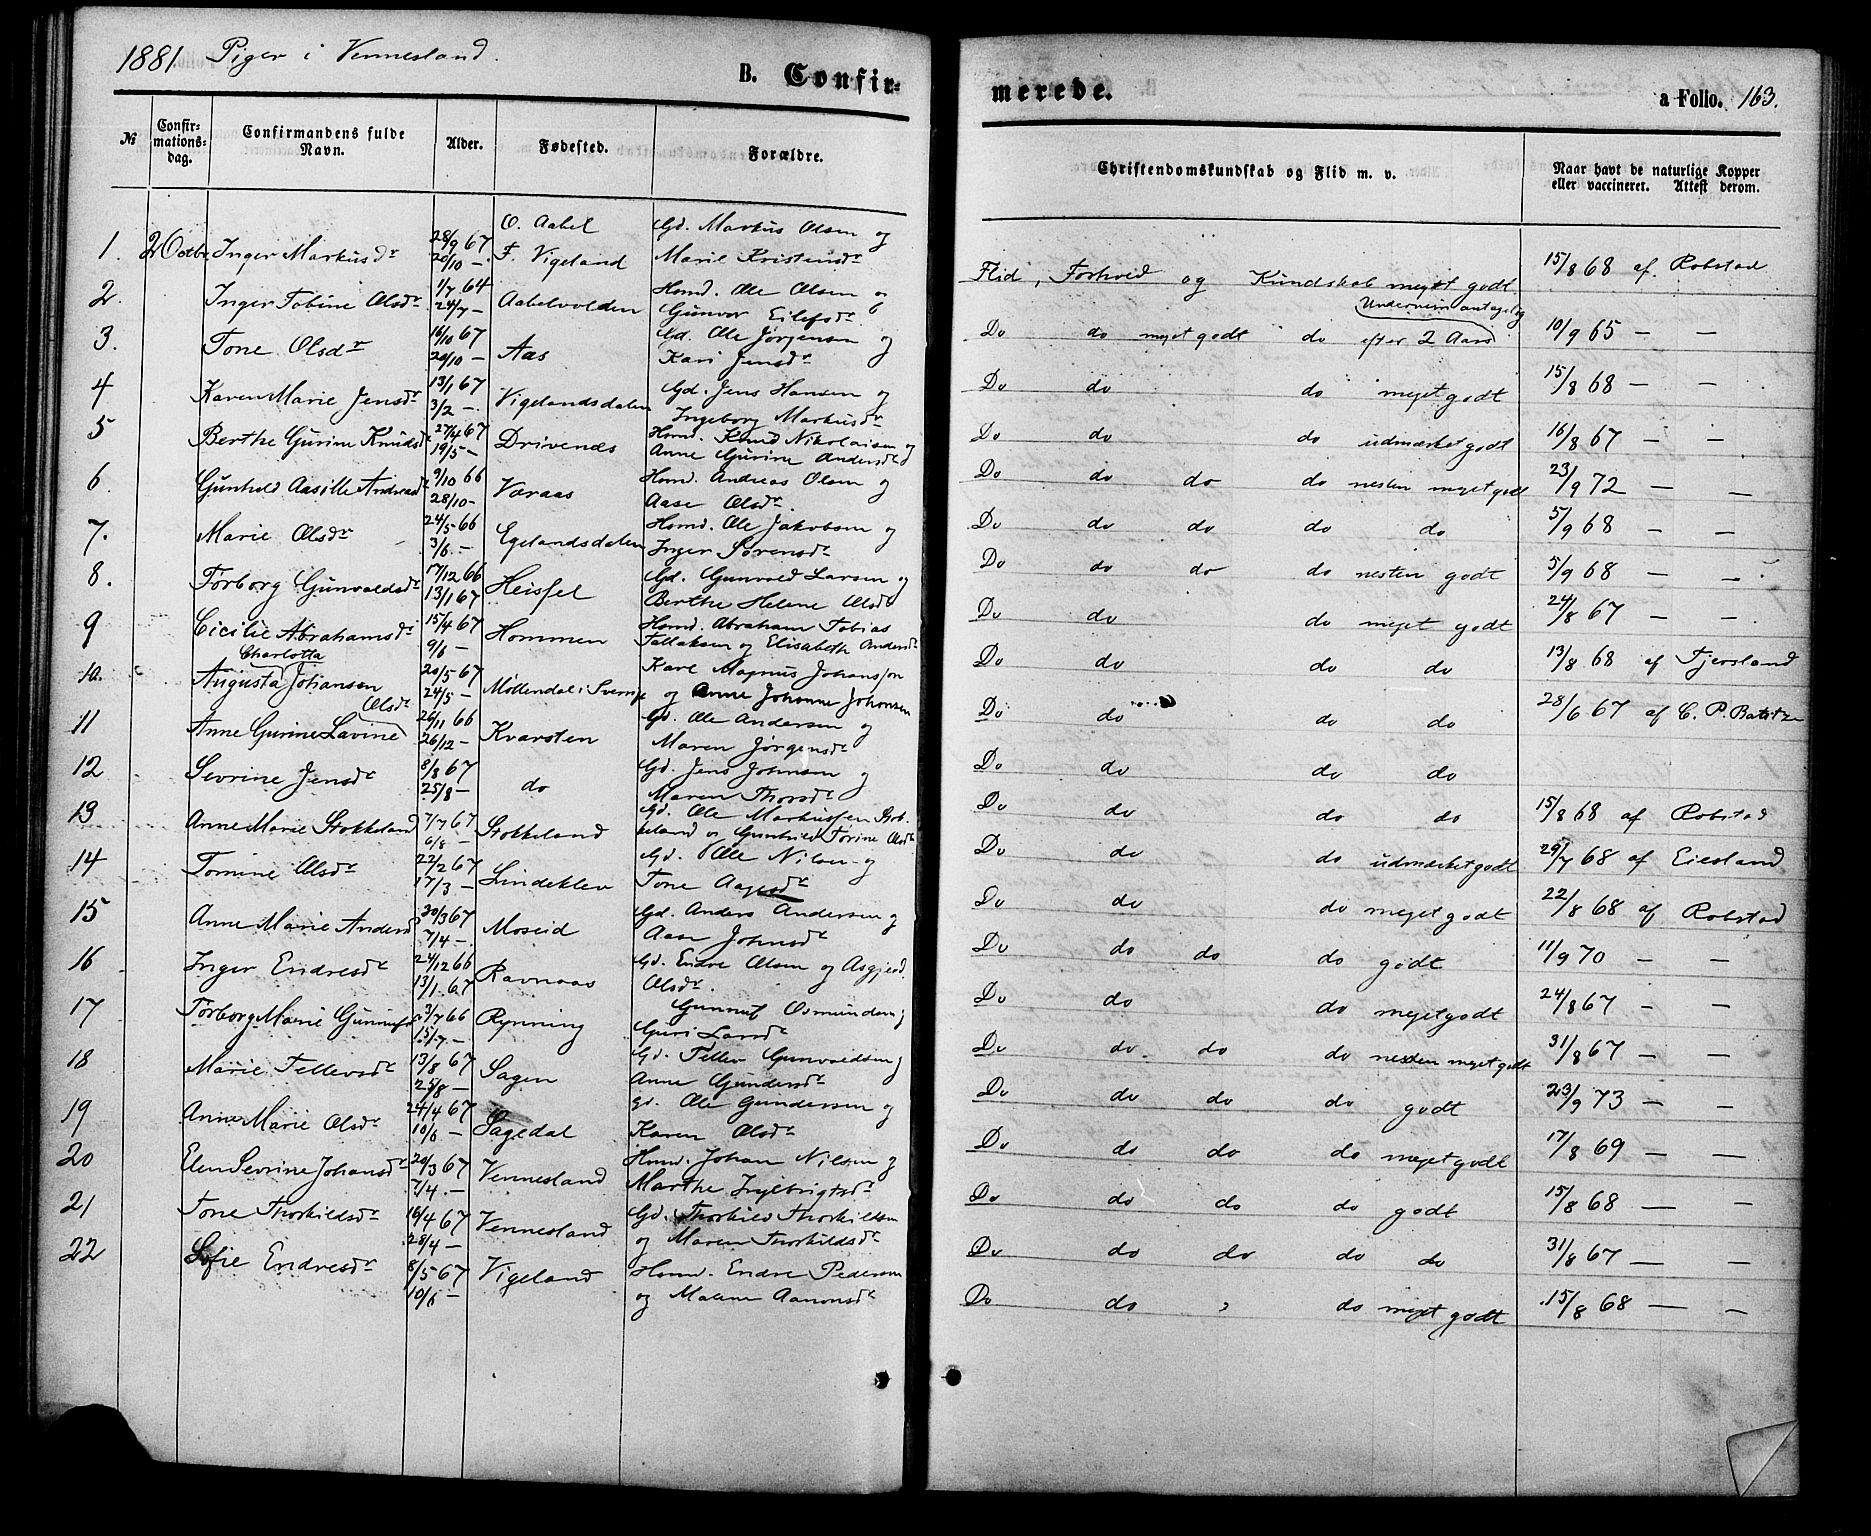 1881 Piger i Vennesland.
B. Confir-
merede.
a Folio. 163.
№ Confir-mations-dag. Confirmandens fulde Navn. Alder. Fødested. Forældre. Christendomskundskab og Flid m. v. Naar havt de naturlige Kopper eller vaccineret. Attest derom.
O. Aabel Gd. Markus Olsen og
1. 2 Octbr. Inger Markusdr 28/9 67 20/10 — F. Vigeland Marie Kristensdr Flid, Forhold og Kundskab meget godt 15/8 68 af Robstad
2. Inger Tobine Olsdr 1/7 64 24/7 — Aabelvolden Hmd. Ole Olsen og
Gunvor Eilefsdr Do do meget godt do efter 2 Aars 10/9 65 — —
3. Tone Olsdr 16/10 67 20/10 — Aas Gd. Ole Jørgensen og
Kari Jensdr Do do do meget godt 15/8 68 — —
4 Karen Marie Jensdr 13/1 67 3/2 — Vigelandsdalen Gd. Jens Hansen og
Ingeborg Markusdr Do do do udmærket godt 16/8 67 — —
5 Berthe Gurine Knudsdr 27/4 67 19/5 — Drivenes Hmd. Knud Nikolaisen og
Anne Gurine Andersdr Do do do do nesten meget godt 23/9 72 — —
6. Gunhild Aasille Andreasdr 9/10 66 28/10 — Væraas Hmd. Andreas Olsen og
Aase Olsdr. Do do do do do 5/9 68 — —
7. Marie Olsdr 24/5 66 3/6 — Egelandsdalen Hmd. Ole Jakobsen og
Inger Sørensdr Do do do do nesten godt 5/9 68 — —
8. Torborg Gunvaldsdr 17/12 66 13/1 67 Heisfel Gd. Gunvald Larsen og
Berthe Helene Olsdr Do do do meget godt 24/8 67 — —
9 Cicilie Abrahamsdr 15/4 67 9/6 — Hommen Hmd. Abraham Tobias
Tallaksen og Elisabeth Andersdr Do do do do 13/8 68 af Fjersland
Charlotta
10. Augusta Johansen 20/5 67 24/5 — Møllendal i Sverige Karl Magnus Johansson
og Anne Johanne Johansen Do do do do 28/6 67 af C. P.
Olsdr
11 Anne Gurine Lavine 26/11 66 26/12 — Kvarsten Gd. Ole Andersen og
Maren Jørgensdr Do do do do
12 Sevrine Jensdr 8/8 67 25/8 — do Gd. Jens Johnsen og
Maren Thorsdr Do do do do 15/8 68 af Robstad
13 Anne Marie Stokkeland 7/7 67 6/8 — Stokkeland Gd. Ole Markussen Stok-
keland og Gunhild Torine Olsdr Do do do udmærket godt 29/7 68 af Eiesland
14 Tomine Olsdr 22/2 67 17/3 — Lindeklev Gd. Ole Nilsen og
Tone Aagesdr Do do do meget godt 22/8 68 af Robstad
15 Anne Marie Andersd 30/3 67 7/4 — Moseid Gd. Anders Andersen og
Aase Johnsdr Do do do do godt 11/9 70 — —
16 Inger Endresdr 24/12 66 13/1 67 Ravnaas Gd. Endre Olsen og Asgjerd
Olsdr. Do do do meget godt 24/8 67 — —
17 Torborg Marie Gunnufsd 3/7 66 15/7 — Rynning Gunnuf Osmundsen og
Guri Larsdr Do do do do nesten meget godt 31/8 67 — —
18 Marie Tellevsdr 13/8 67 25/8 — Sagen Gd. Tellev Gunvaldsen og
Anne Gundersdr Do do do do godt 23/9 73 — —
19 Anne Marie Olsdr 24/4 67 10/6 — Sagedal Gd. Ole Gundersen og
Karen Olsdr Do do do do meget godt 17/8 69 — —
20 Elen Sevrine Johansdr 20/3 67 7/4 — Vennesland Hmd. Johan Nilsen og
Marthe Ingebrigtsdr Do do do do godt 15/8 68 — —
21 Tone Thorkildsdr 16/4 67 28/4 — Vennesland Gd. Thorkild Thorkildsen
og Maren Thorkildsdr Do do do do do 31/8 67 — —
22 Sofie Endresdr 8/5 67 10/6 — Vigeland Hmd. Endre Pedersen
og Malene Aanonsdr Do do " do meget godt 15/8 68 — —